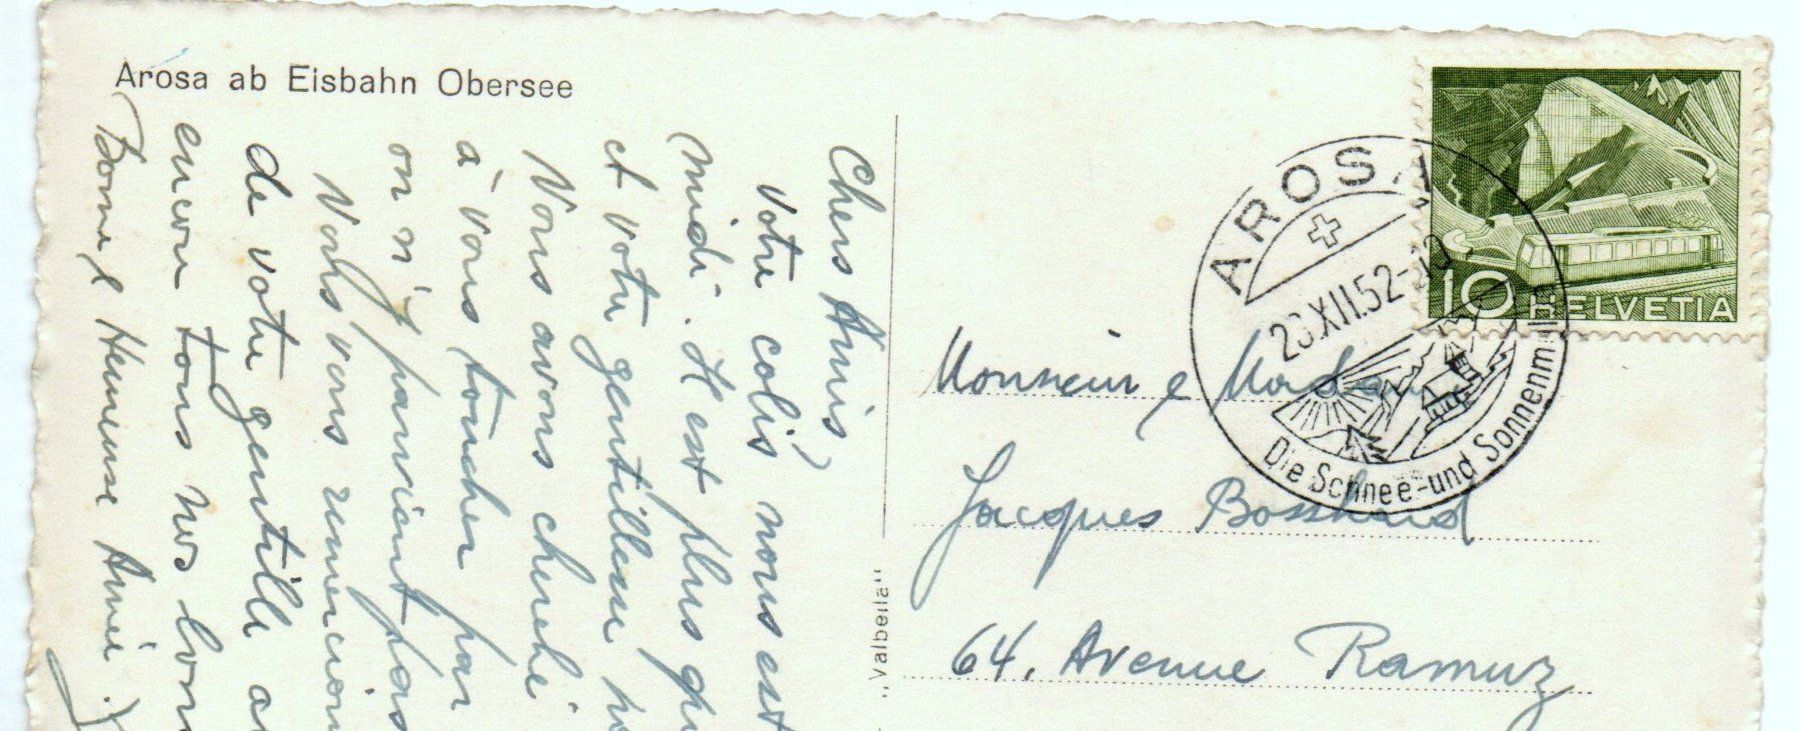 Arosa ab Eisbahn Obersee
Chers Amis,
votre colis nous est
midi. Il est plus
et votre gentillesse
Vous avons cherché
à vous toucher par
on n'y parvient pas
Vous vous
de votre gentille
encore tous nos bons
Bonne & Heureuse Année.
"Valbella"
AROSA
XII.52-
Die Schnee- und Sonnen
10 HELVETIA
Monsieur & Madame
Jacques Bosshard
64, Avenue Ramuz